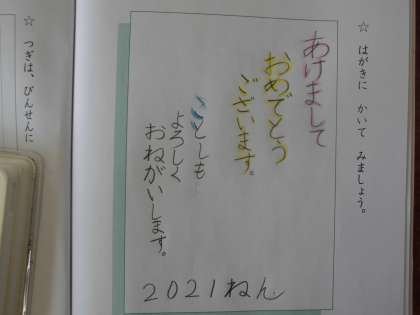 ☆ はがきに かいて みましょう。
あけまして
おめでとう
ございます。
ことしも
よろしく
おねがいします。
2021ねん
☆ つぎは、びんせんに